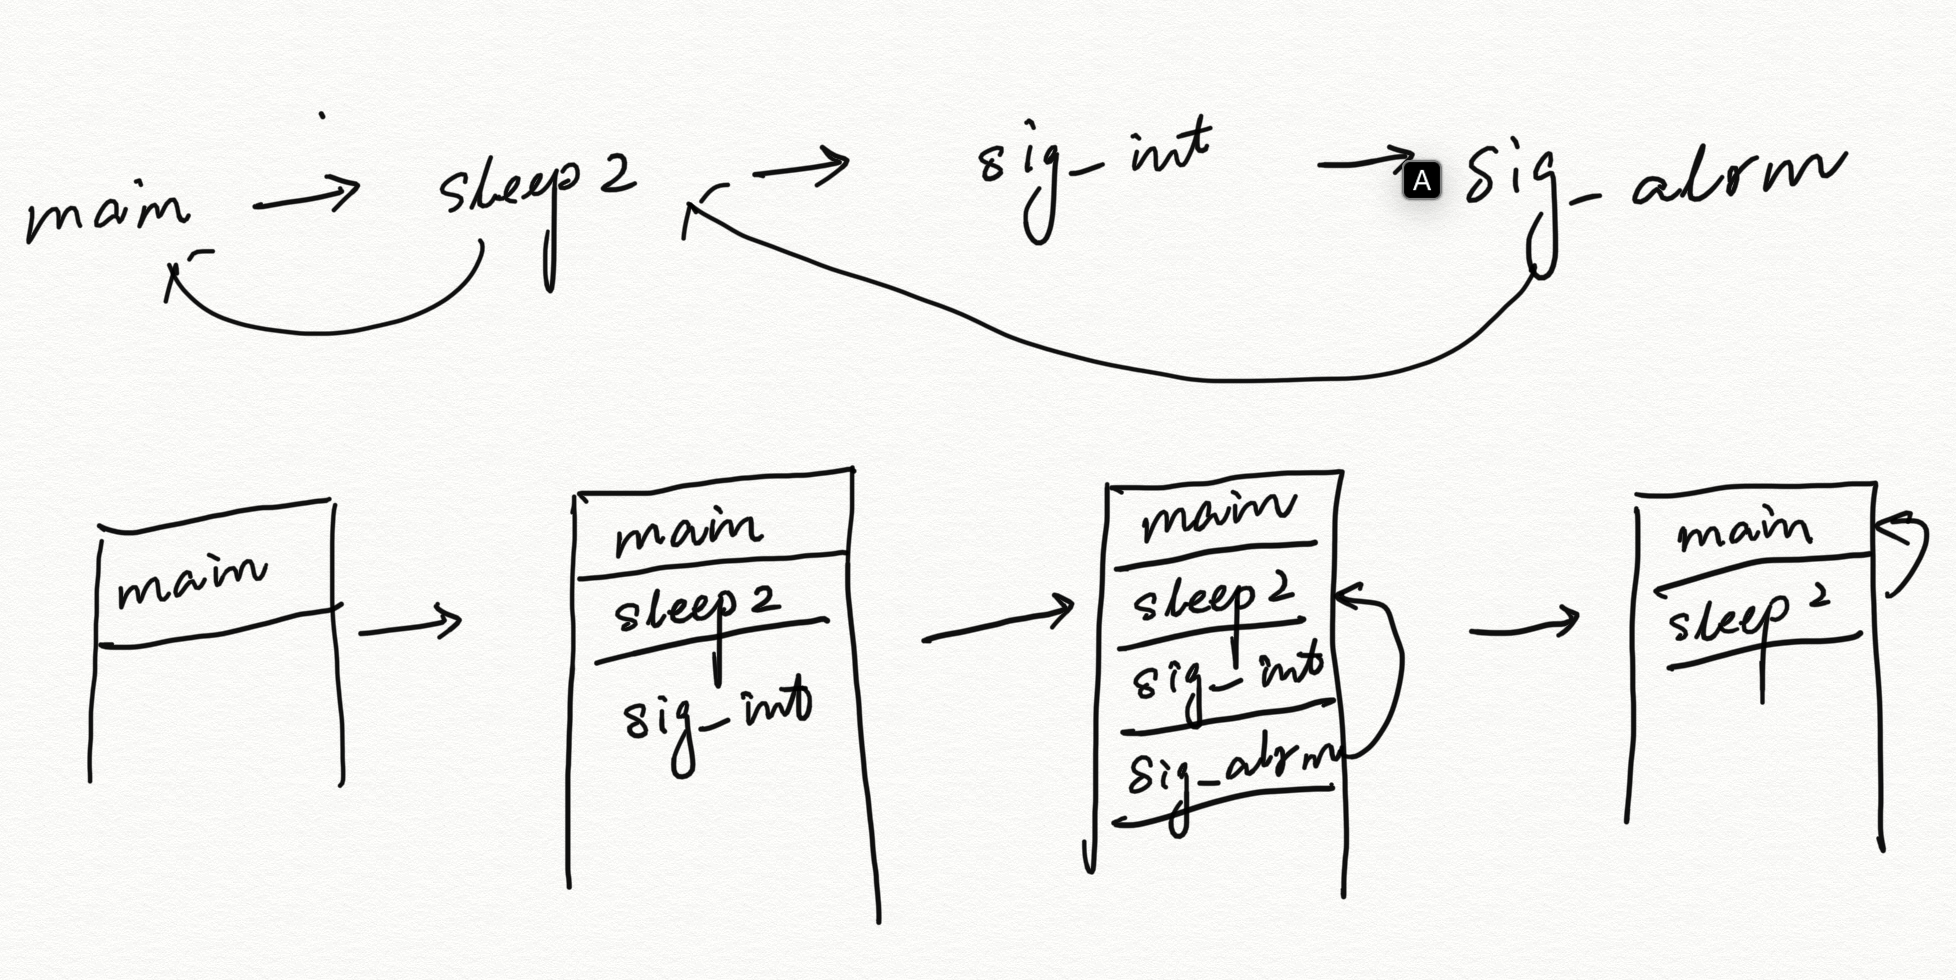 main → sleep2 → sig_int → sig_alrm
A
main
main
sleep2
sig_int
main
sleep2
sig_int
sig_alrm
main
sleep2